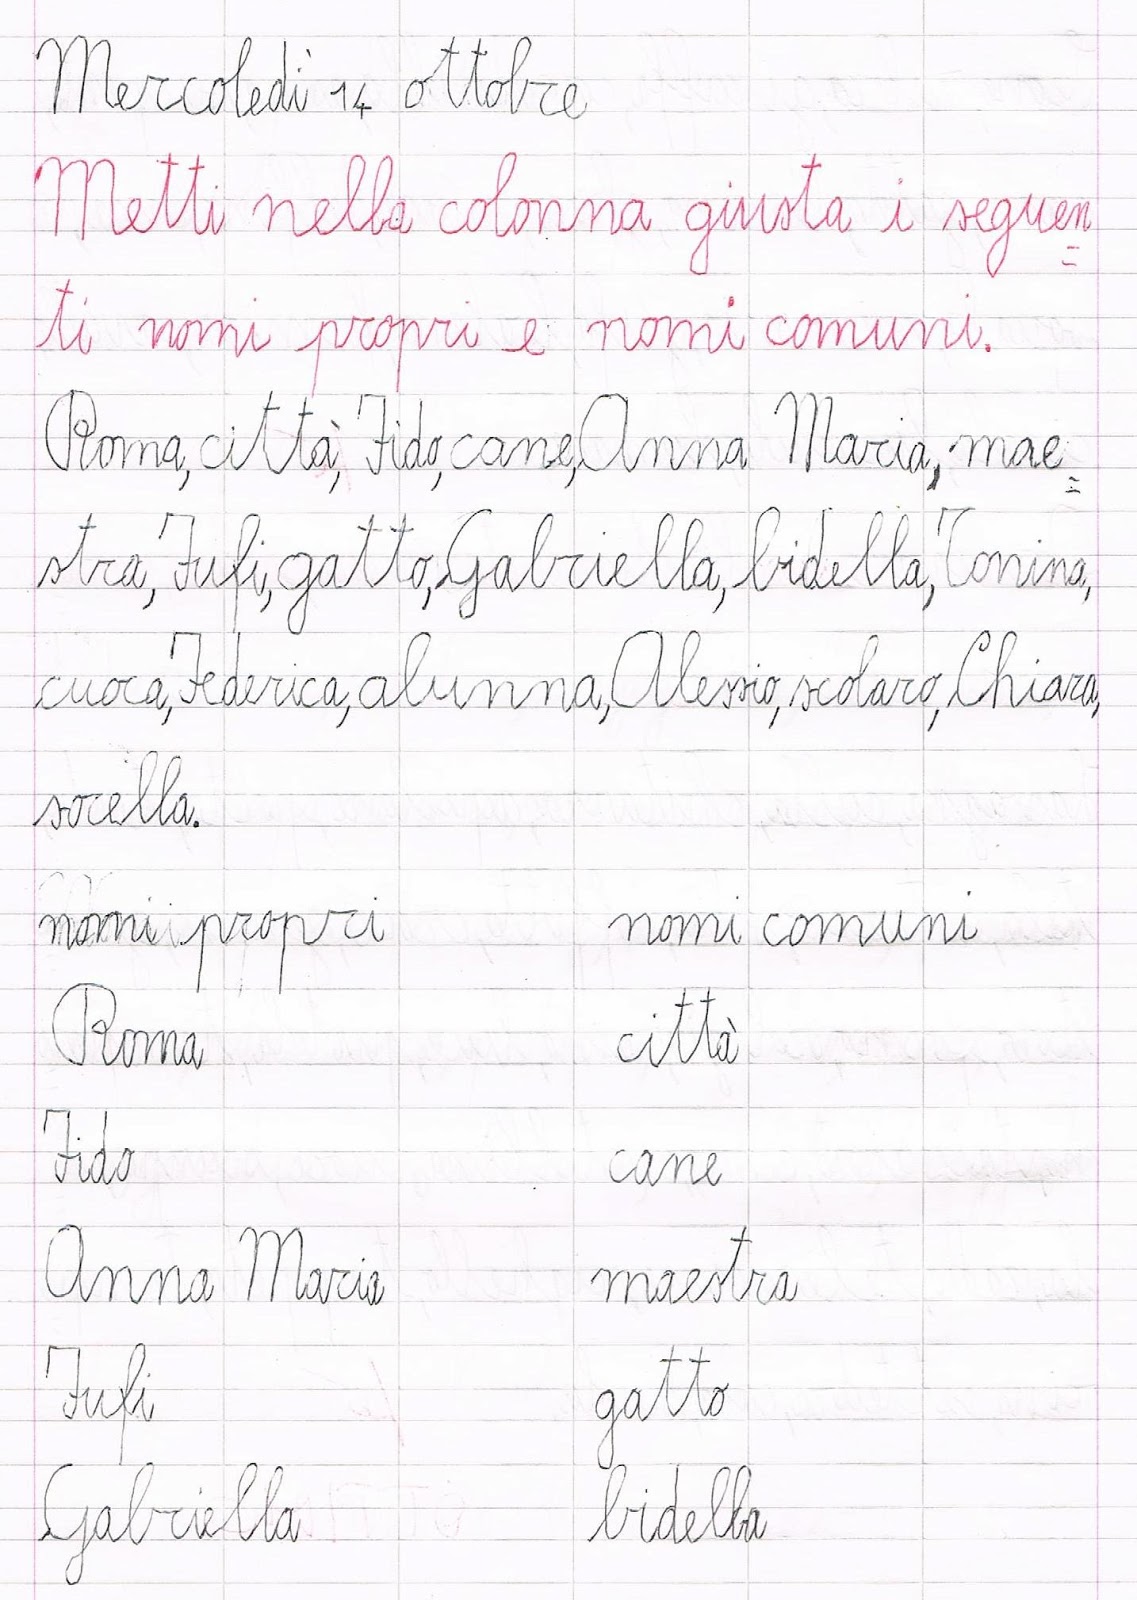 Mercoledì 14 ottobre
Metti nella colonna giusta i seguen=
ti nomi propri e nomi comuni.
Roma, città, Fido, cane, Anna Maria, mae=
stra, Fufi, gatto, Gabriella, bidella, Tonina,
cuoca, Federica, alunna, Alessio, scolaro, Chiara,
sorella.
nomi propri nomi comuni
Roma città
Fido cane
Anna Maria maestra
Fufi gatto
Gabriella bidella